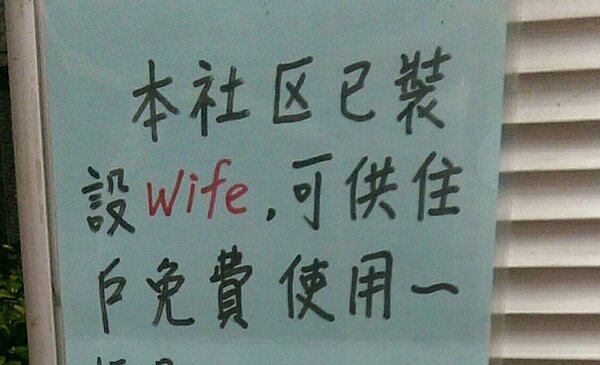 本社区已裝
設Wife,可供住
戶免費使用一